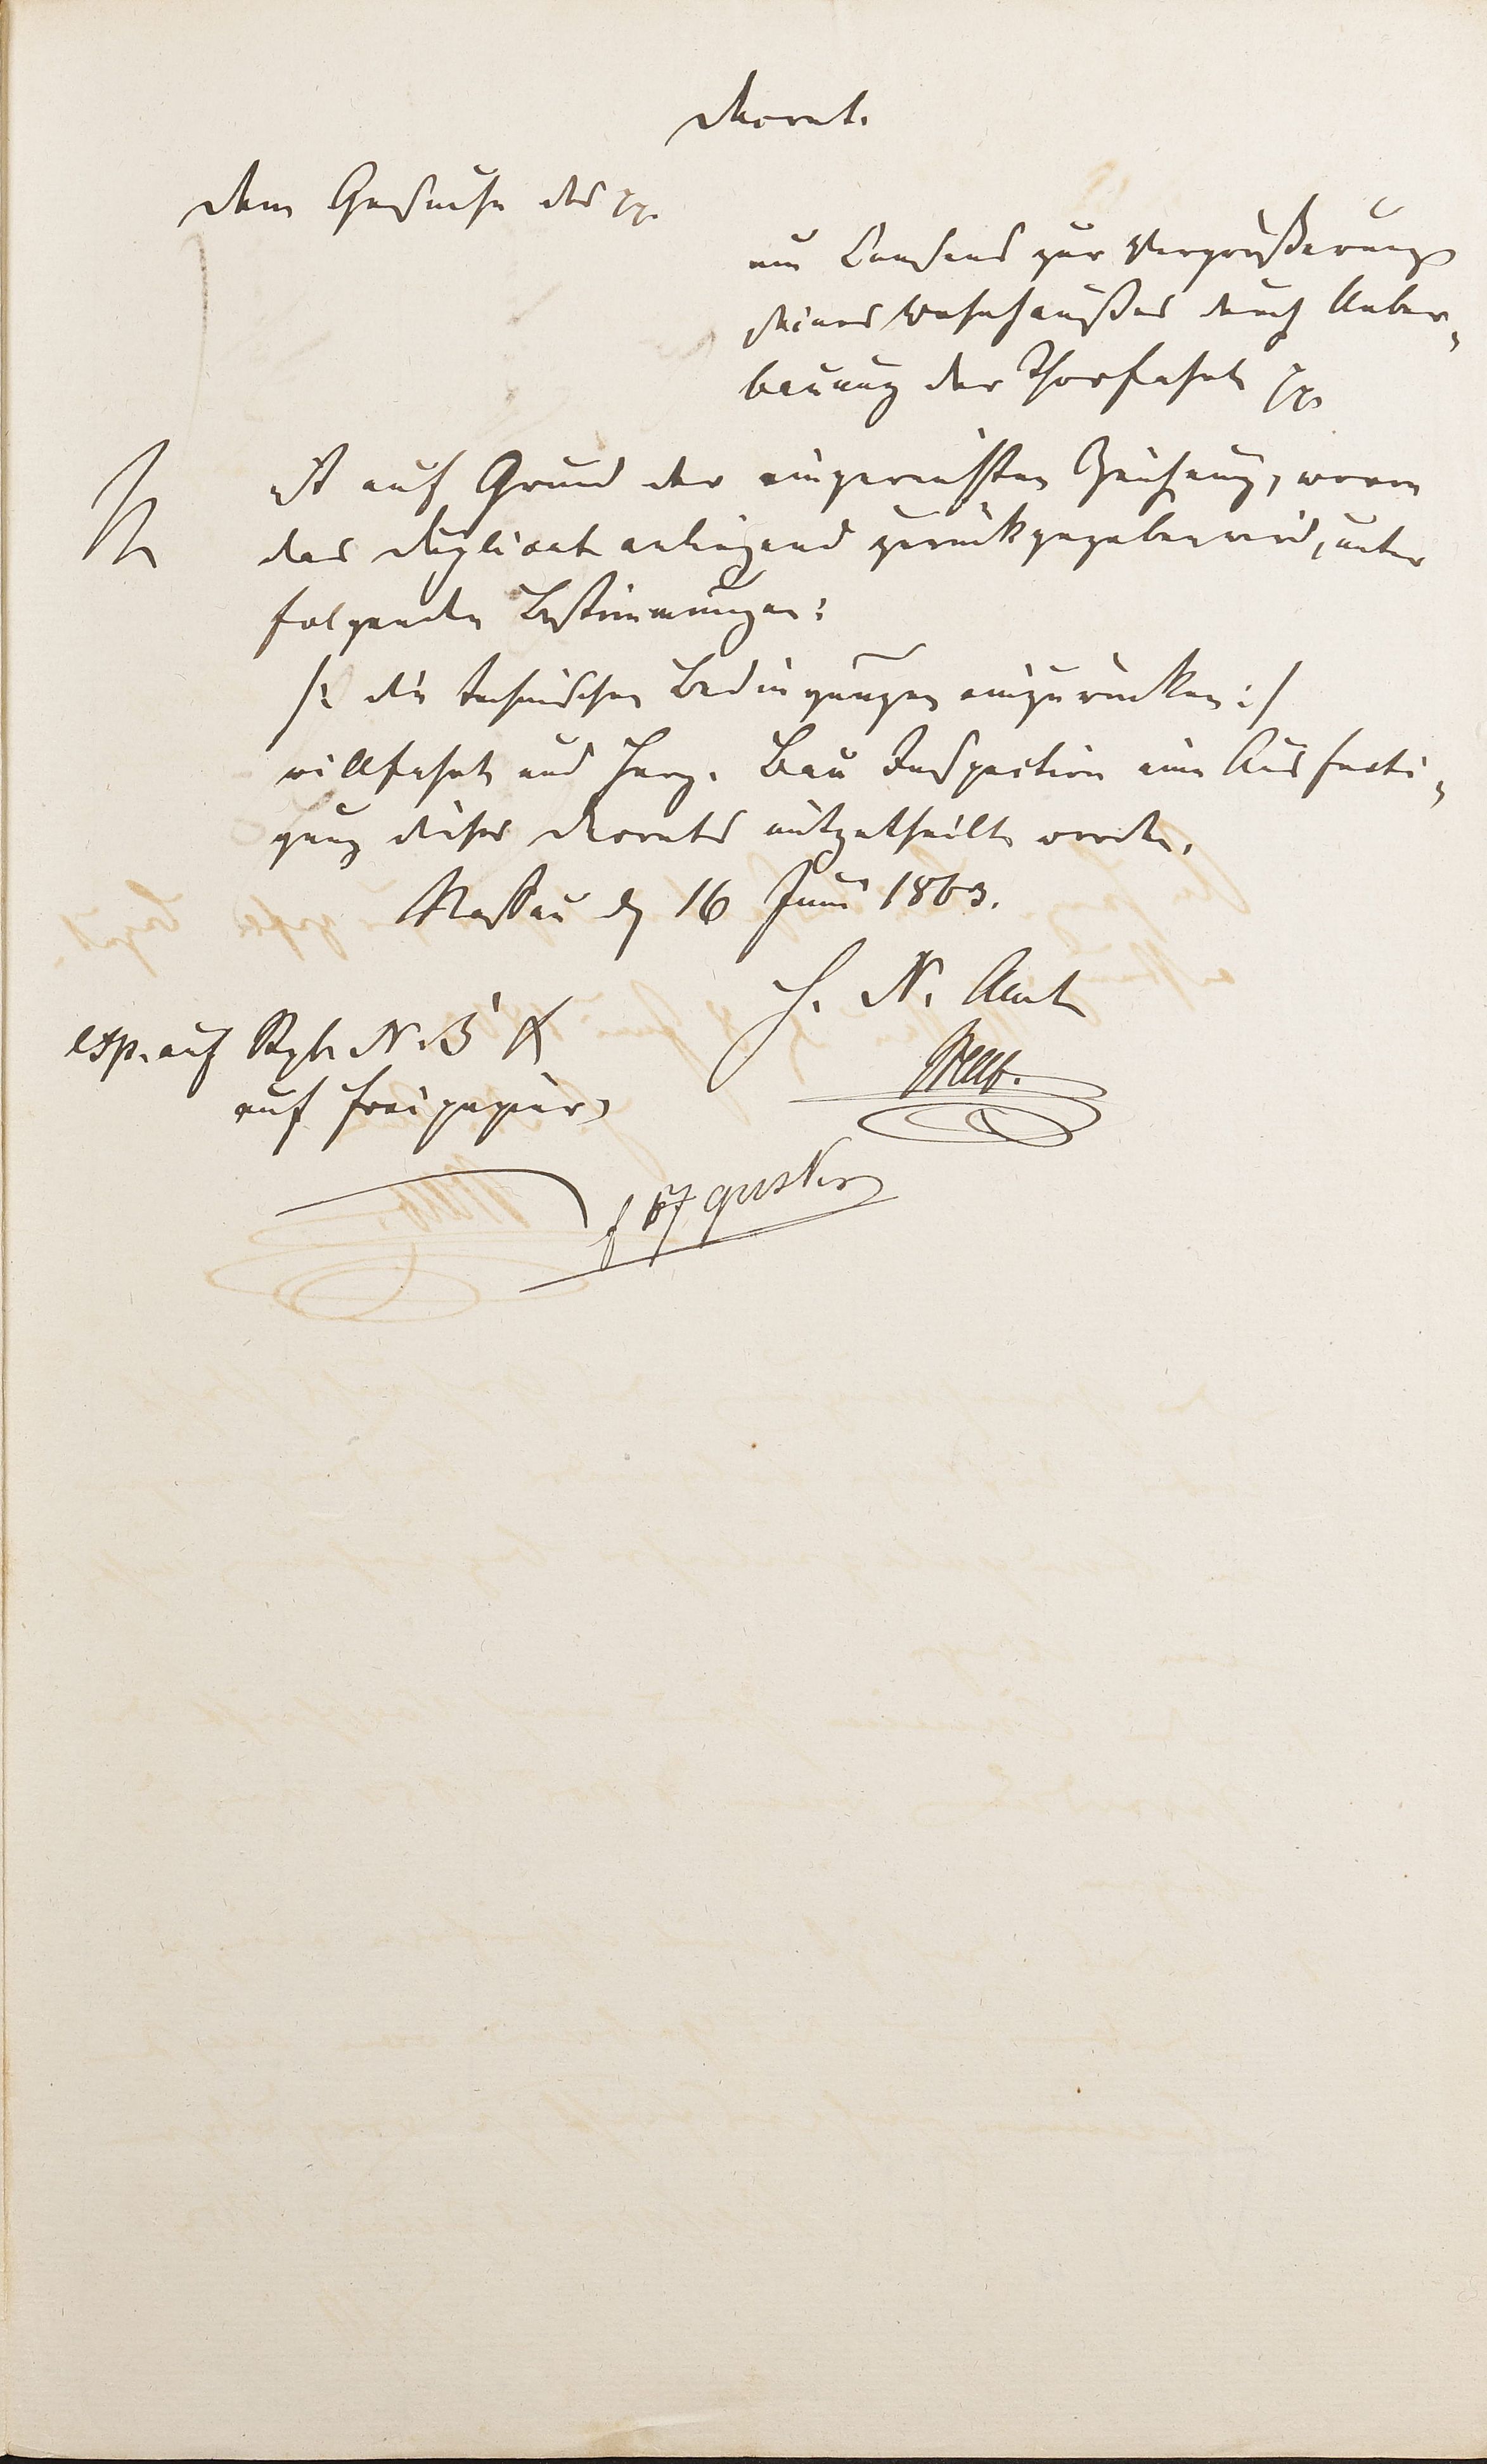 Decret.
Dem Gesuche des pp.
um Consens zur Vergrößerung
seines Wohnhaußes durch Ueber-
bauung der Thorfahrt pp
ist auf Grund der eingereichten Zeichnung, wovon
das Duplicat anliegend zurückgegeben wird, unter
folgenden Bestimmungen:
/: die technischen Bedingungen einzurücken :/
willfahrt und Herz. Bau Inspection eine Ausferti-
gung dieses Decrets mitgetheilt worden.
Nassau d 16 Juni 1863.
H. N. Amt
exp. auf N. 3
auf freipapier